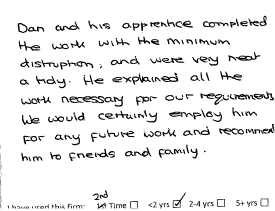 Dan and his apprentice completed
the work with the minimum
distruption, and were very neat
a tidy. He explained all the
work necessary for our requirements
We would certainly employ him
for any future work and recommend
him to friends and family.
2nd
I have used this firm: 1st Time ☐ <2 yrs ☑ 2-4 yrs ☐ 5+ yrs ☐